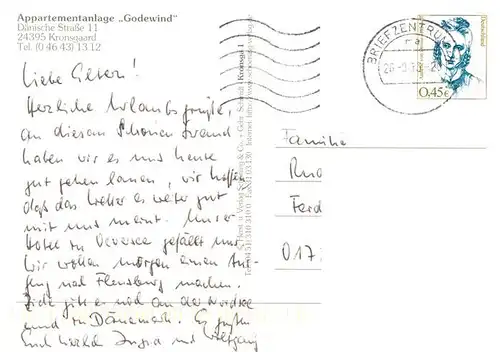 Appartementanlage „Godewind"
Dänische Straße 11
24395 Kronsgaard
Tel. (0 46 43) 13 12
Liebe Eltern!
Herzliche Urlaubsgrüße,
an diesem schönen Strand
haben wir es uns heute
gut gehen lassen, wir hoffen
daß das Wetter es weiter gut
mit uns meint. Unser
Hotel in gefällt uns
Wir wollen morgen einen Aus-
flug nach Flensburg machen.
geht es noch an der Nordsee
und in Dänemark. Es grüßen
Euch herzlich Ingrid und Wolfgang
BRIEFZENTRUM
Deutschland
0,45€
Familie
Ferd
017